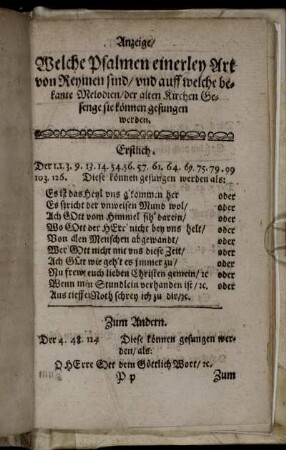 Anzeige/
Welche Psalmen einerley Art
von Reymen sind/ vnd auff welche be-
kante Melodien/ der alten Kirchen Ge-
senge sie können gesungen
werden.
Erstlich.
Der 1.2.3. 9. 13. 14. 54. 56. 57. 61. 64. 69. 75. 79. 99
103. 126. Diese können gesungen werden als:
Es ist das Heyl vns g'kommen her oder
Es spricht der vnweisen Mund wol/ oder
Ach Gott vom Himmel sih' darein/ oder
Wo Gott der HErr nicht bey vns helt/ oder
Von allen Menschen abgewandt/ oder
Wer Gott nicht mit vns diese Zeit/ oder
Ach Gott wie geh't es jmmer zu/ oder
Nu frewt euch lieben Christen gemein/ ꝛc oder
Wenn mein Stundlein verhanden ist/ ꝛc. oder
Aus tieffer Noth schrey ich zu dir/ꝛc.
Zum Andern.
Der 4. 48. 114 Diese können gesungen wer-
den/ als:
O HErre Gott dein Göttlich Wort/ ꝛc.
P p Zum